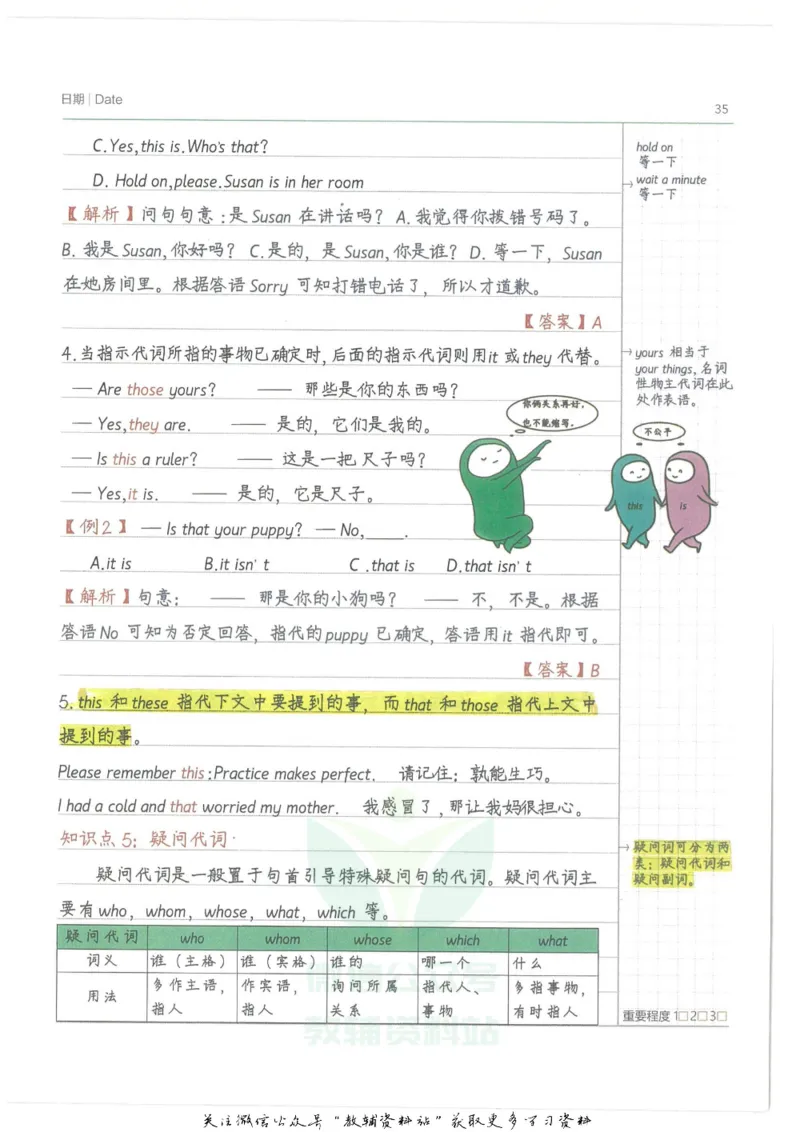 日期 | Date
35
C.Yes,this is.Who's that?
D. Hold on,please.Susan is in her room
【解析】问句句意:是 Susan 在讲话吗? A.我觉得你拨错号码了。
B. 我是 Susan,你好吗? C.是的, 是 Susan,你是谁? D. 等一下, Susan
在她房间里。根据答语 Sorry 可知打错电话了, 所以才道歉。
【答案】A
4.当指示代词所指的事物已确定时,后面的指示代词则用it 或they 代替。
— Are those yours? —— 那些是你的东西吗?
— Yes,they are. —— 是的, 它们是我的。
— Is this a ruler? —— 这是一把 尺子吗?
— Yes,it is. —— 是的, 它是尺子。
【例2】 — Is that your puppy? — No,____.
A.it is B.it isn' t C .that is D.that isn' t
【解析】句意: —— 那是你的小狗吗? —— 不, 不是。根据
答语No 可知为否定回答, 指代的puppy 已确定, 答语用it 指代即可。
【答案】B
5.this 和 these 指代下文中要提到的事, 而 that 和 those 指代上文中
提到的事。
Please remember this:Practice makes perfect. 请记住: 孰能生巧。
I had a cold and that worried my mother. 我感冒了,那让我妈很担心。
知识点 5: 疑问代词·
疑问代词是一般置于句首引导特殊疑问句的代词。疑问代词主
要有 who, whom, whose, what, which 等。
疑问代词 who whom whose which what
词义 谁(主格) 谁(宾格) 谁的 哪一个 什么
用法 多作主语, 作宾语, 询问所属 指代人、 多指事物,
指人 指人 关系 事物 有时指人
hold on
等一下
wait a minute
等一下
yours 相当于
your things, 名词
性物主代词在此
处作表语。
你俩关系再好,
也不能缩写。
不公平
this is
疑问词可分为两
类: 疑问代词和
疑问副词。
重要程度 1□ 2□ 3□
教辅资料站
关注微信公众号 "教辅资料站" 获取更多学习资料